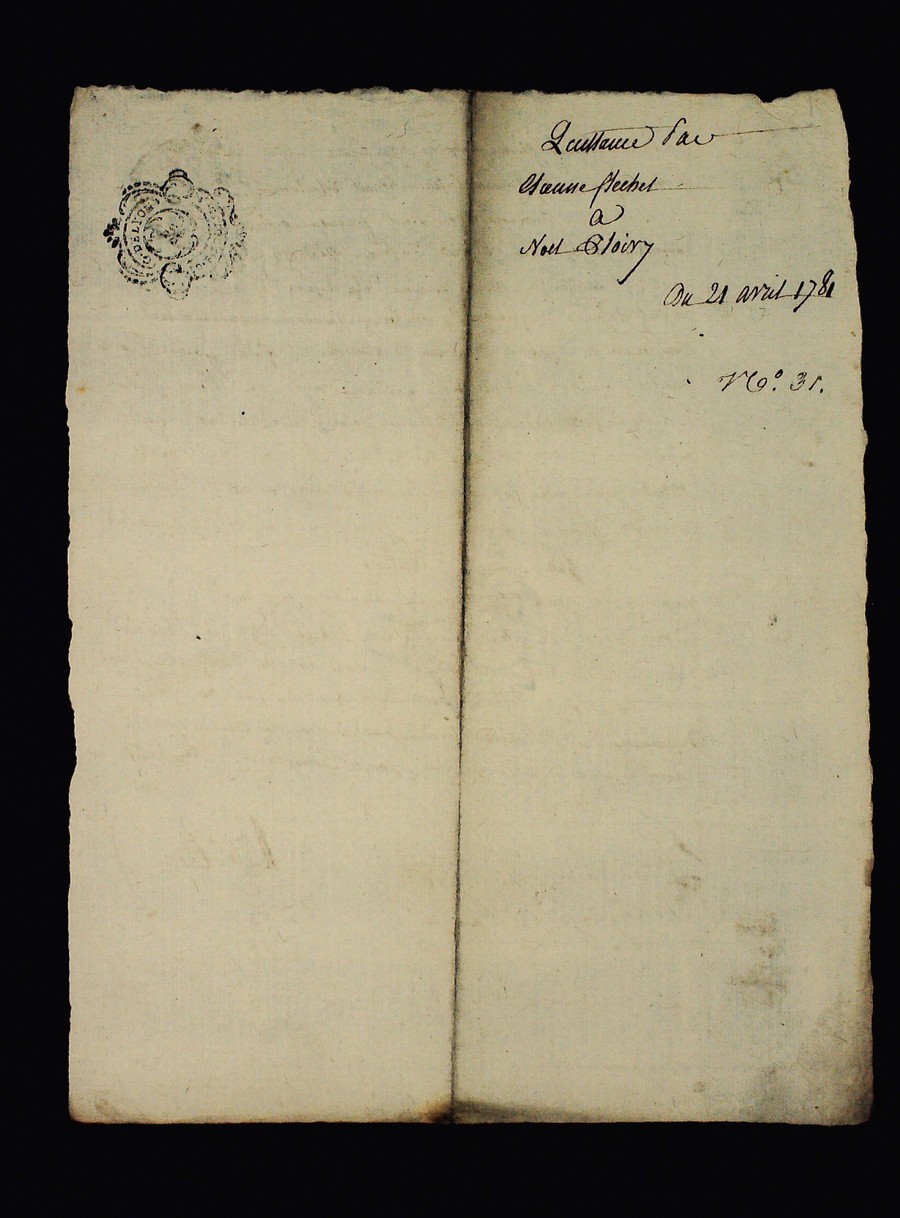 DE LYON
Quittance Par
Etienne flechet
a
Noel Bloiry
Du 21 avril 1781
No. 31.